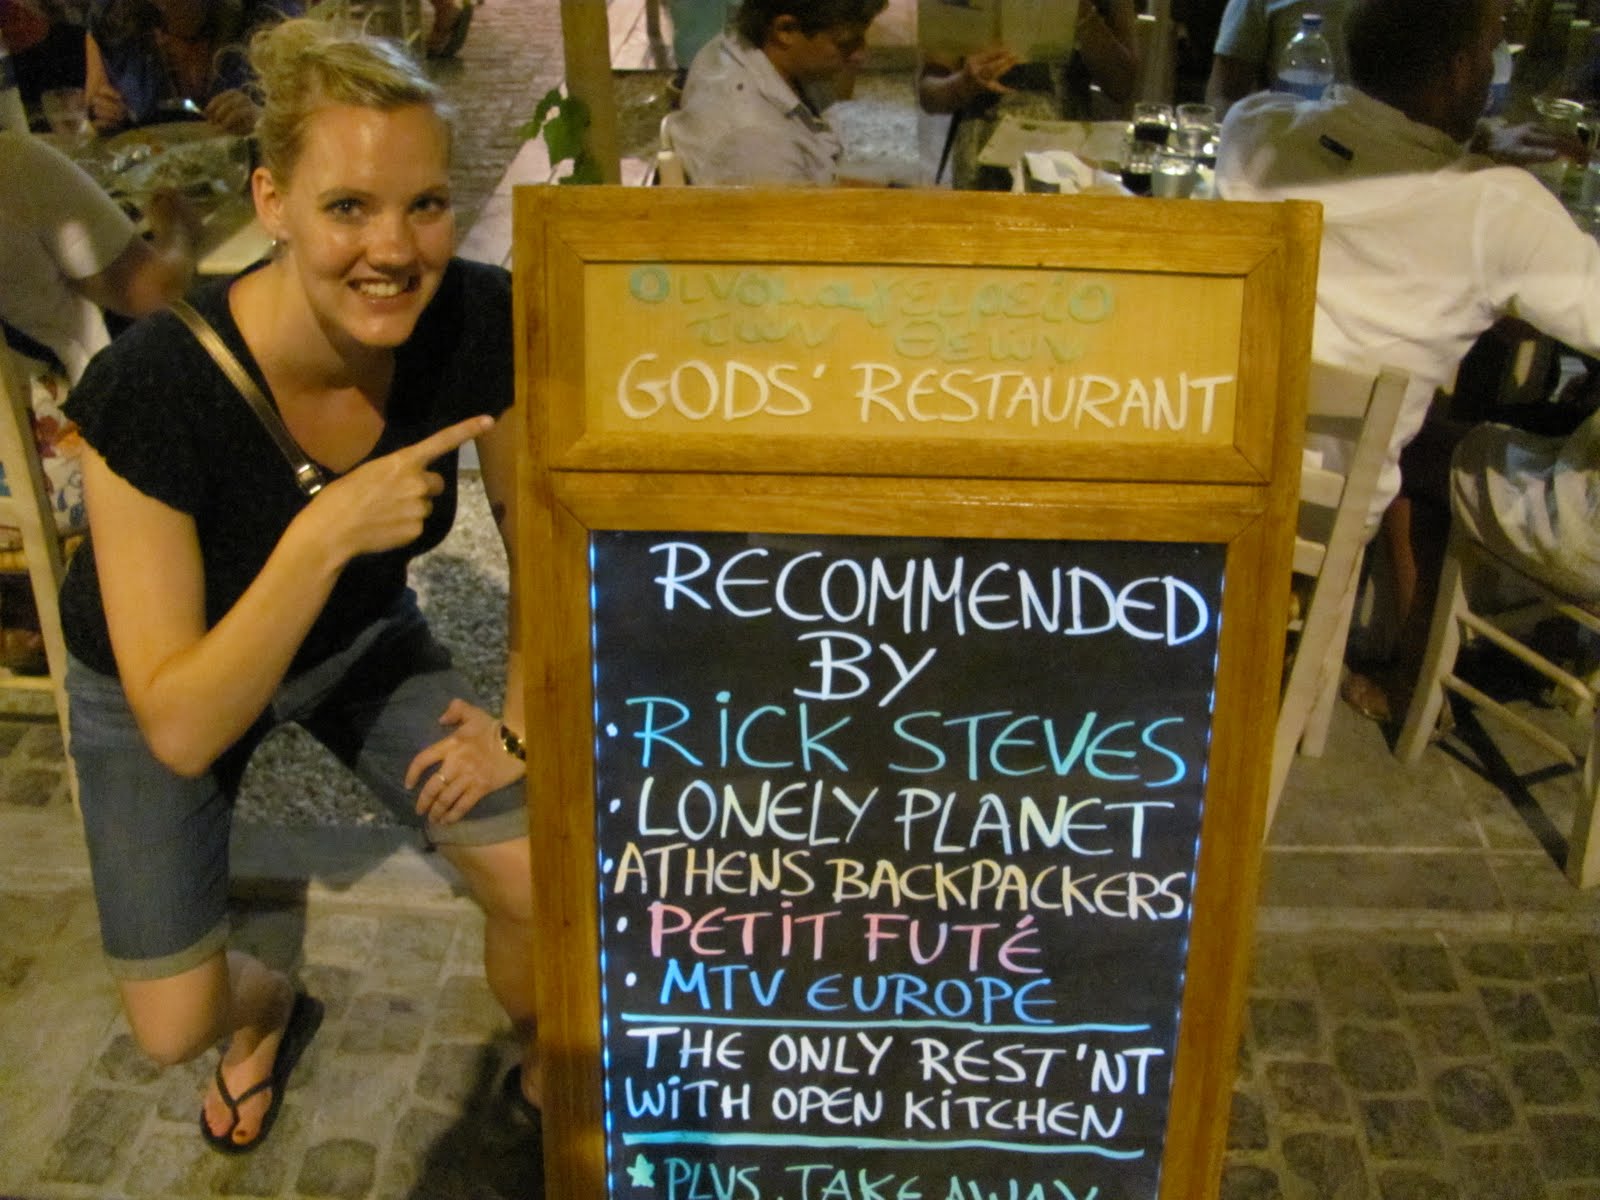 Οινομαγειρείο
των Θεών
GODS' RESTAURANT
RECOMMENDED
BY
• RiCK STEVES
• LONELY PLANET
• ATHENS BACKPACKERS
• PETiT FUTÉ
• MTV EUROPE
THE ONLY REST'NT
WiTH OPEN KiTCHEN
★ PLUS, TAKE AWAY